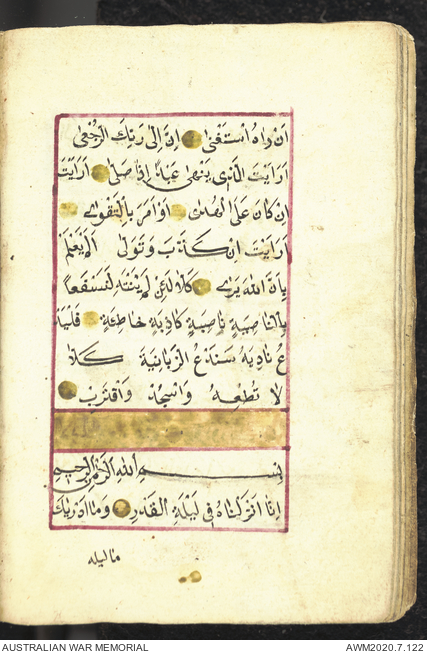 ان راه استغنى ان الى ربك الرجعى
ارايت الذى ينهى عبدا اذا صلى ارايت
ان كان على الهدى او امر بالتقوى
ارايت ان كذب وتولى الم يعلم
بان الله يرى كلا لئن لم ينته لنسفعا
بالناصية ناصية كاذبة خاطئة فليد
ع ناديه سندع الزبانية كلا
لا تطعه واسجد واقترب
بسم الله الرحمن الرحيم
انا انزلناه فى ليلة القدر وما ادريك
ما ليله
AUSTRALIAN WAR MEMORIAL AWM2020.7.122